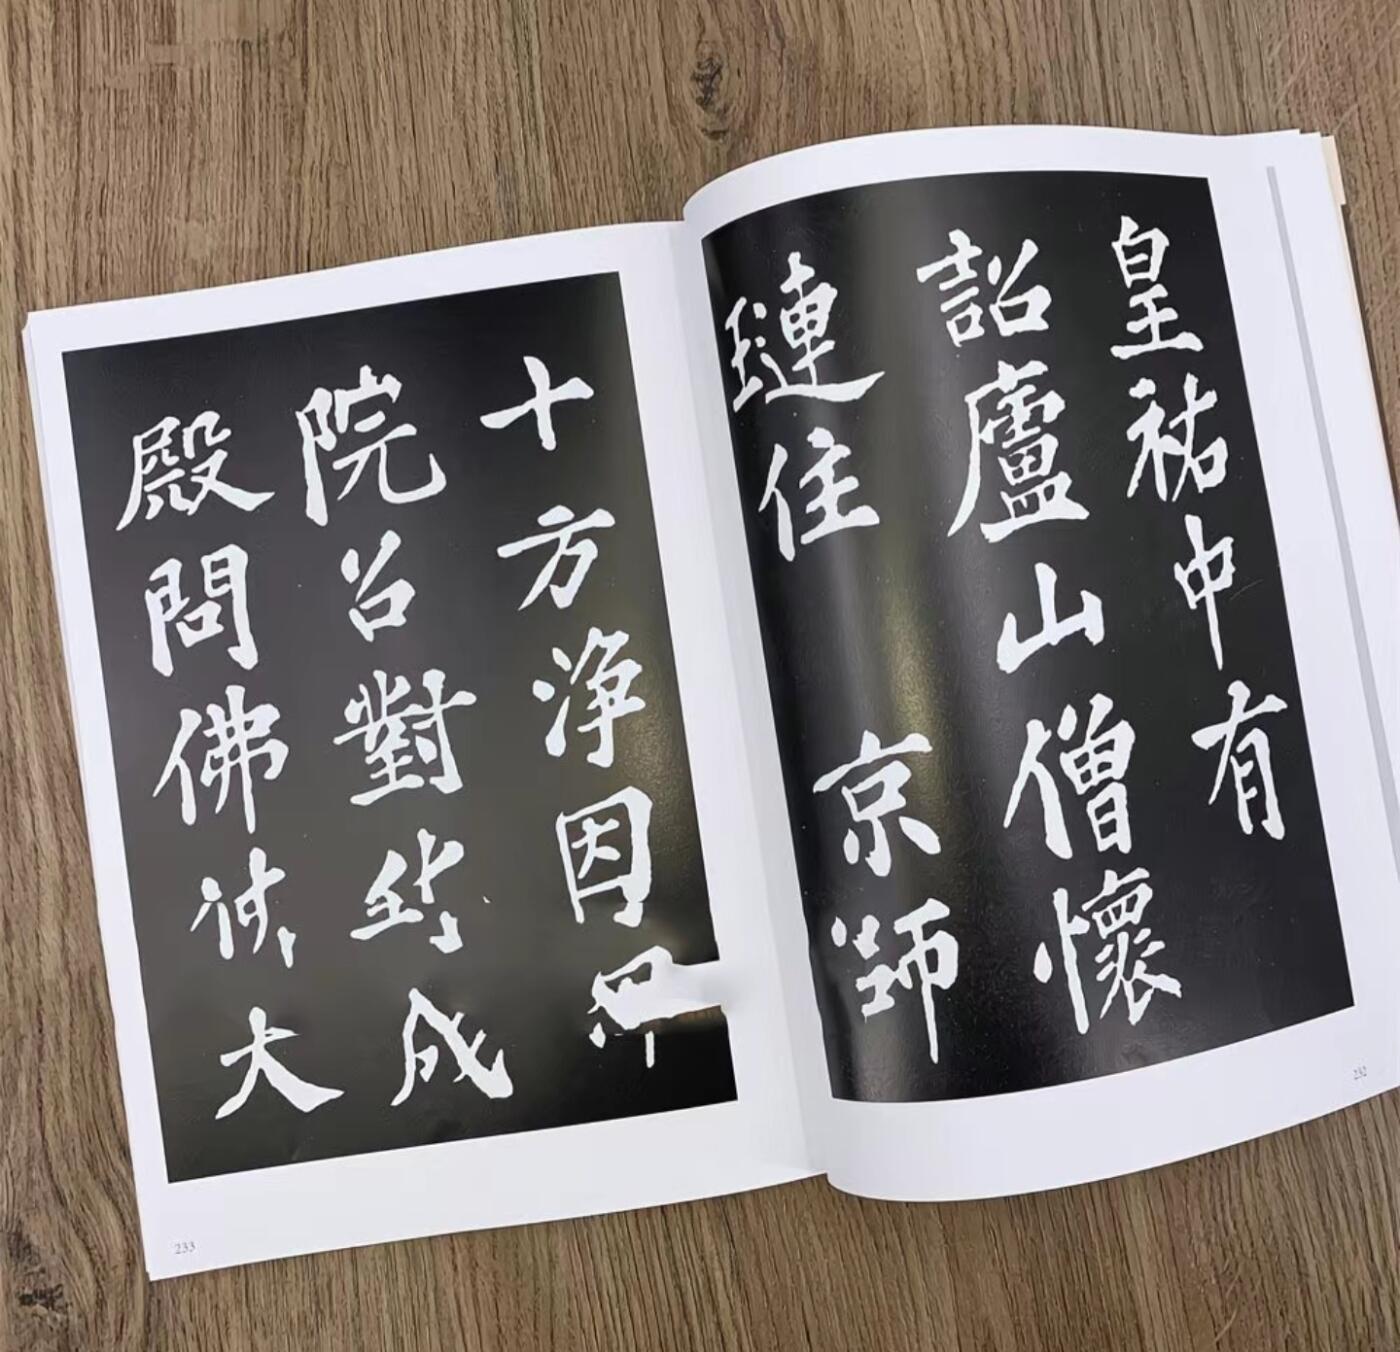 皇祐中有
詔廬山僧懷
璉住 京師
232
十方淨因
院召對 成
殿問佛 大
233